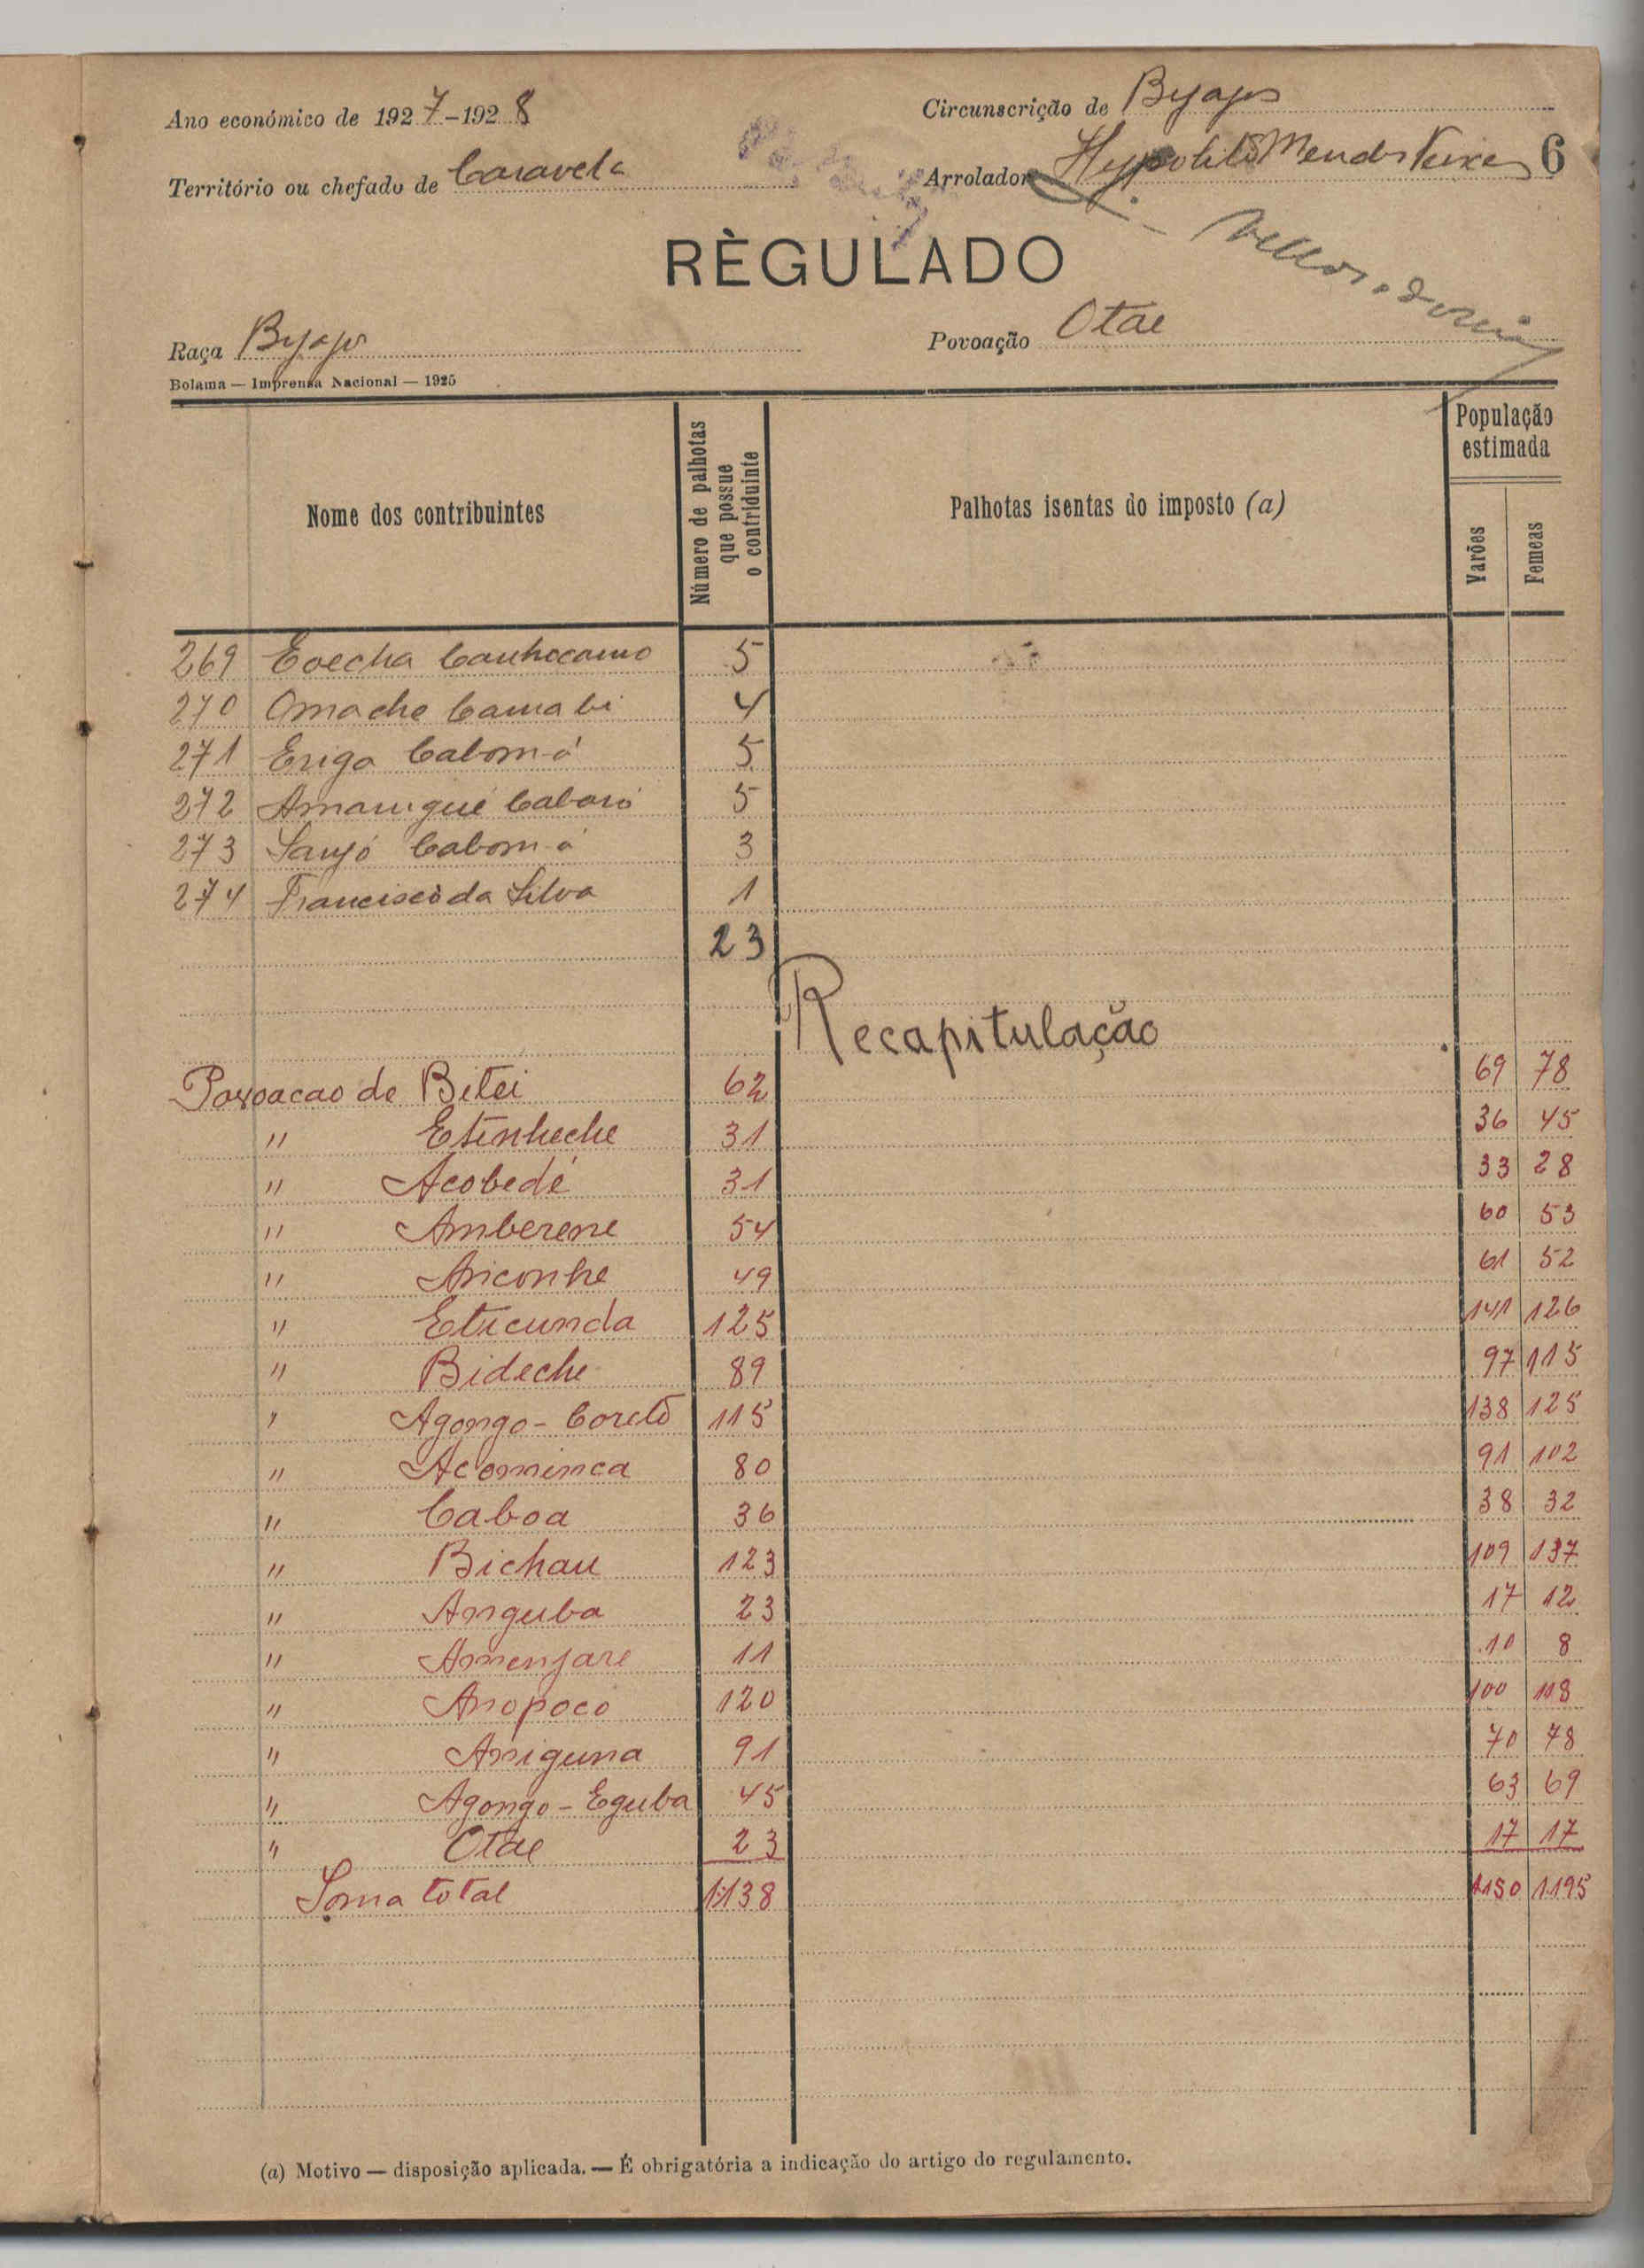 Ano económico de 1927-1928
Circunscrição de Byagos
Território ou chefado de Caravela
Arrolador Hypolito Mendes 6
RÈGULADO
Raça Byagos
Povoação Otae
Bolama — Imprensa Nacional — 1925
Nome dos contribuintes
Número de palhotas que possue o contriduinte
Palhotas isentas do imposto (a)
População estimada
Varões Femeas
269 Eoecha Canhocamo 5
270 Omache Camabi 4
271 Eriga Cabom-á 5
272 5
273 Sanjó Cabom-á 3
274 Francisco da Silva 1
23
Recapitulação
Povoacao de Bitei 62 69 78
" Etinheche 31 36 45
" Acobedé 31 33 28
" Amberene 54 60 53
" Ariconhe 49 61 52
" Eticunda 125 141 126
" Bideche 89 97 115
" Agongo-Coretó 115 138 125
" Acominca 80 91 102
" Caboa 36 38 32
" Bichau 123 109 137
" Anguba 23 17 12
" Amenjare 11 10 8
" Anopoco 120 100 118
" Aniguna 91 70 78
" Agongo-Eguba 45 63 69
" Otae 23 17 17
Soma total 1:138 1150 1.195
(a) Motivo — disposição aplicada. — É obrigatória a indicação do artigo do regulamento.